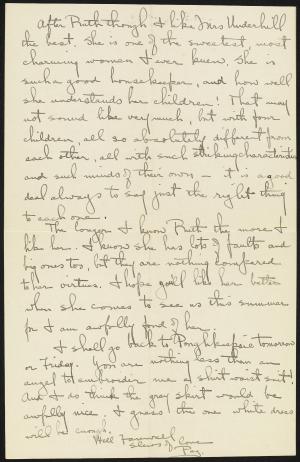 After Ruth though I like Mrs Underhill
the best. She is one of the sweetest, most
charming women I ever knew. She is
such a good housekeeper, and how well
she understands her children! That may
not sound like very much, but with four
children, all so absolutely different from
each other, all with such striking characteristics
and such minds of their own — it is a good
deal always to say just the right thing
to each one.
The longer I know Ruth the more I
like her. I know she has lots of faults and
big ones too, but they are nothing compared
to her virtues. I hope you'll like her better
when she comes to see us this summer
for I am awfully fond of her.
I shall go back to Poughkeepsie tomorrow
or Friday. You are nothing less than an
angel to embroider me a shirt waist suit.
And I do think the gray skirt would be
awfully nice. I guess the one white dress
will be enough.
Well Farewell
Love
Peg.